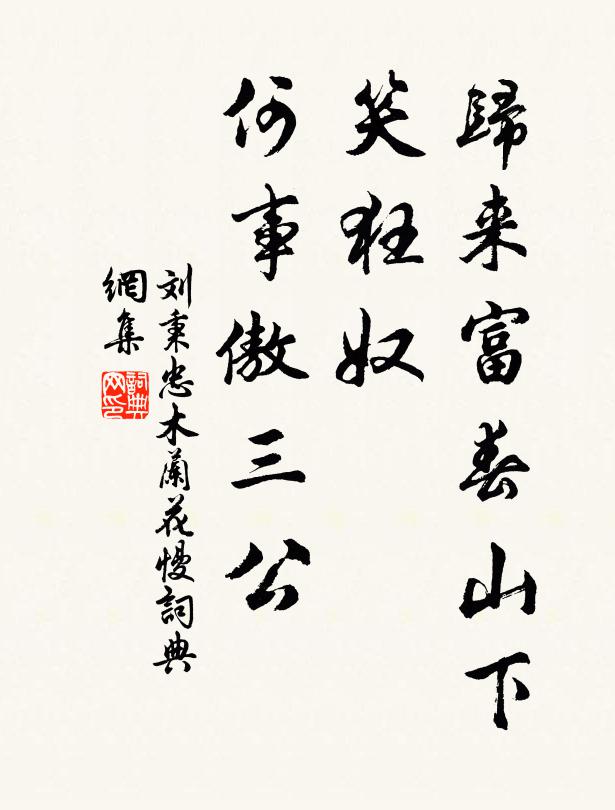 歸来富春山下
笑狂奴
何事傲三公
刘秉忠木蘭花慢詞典
網集
詞典
网印